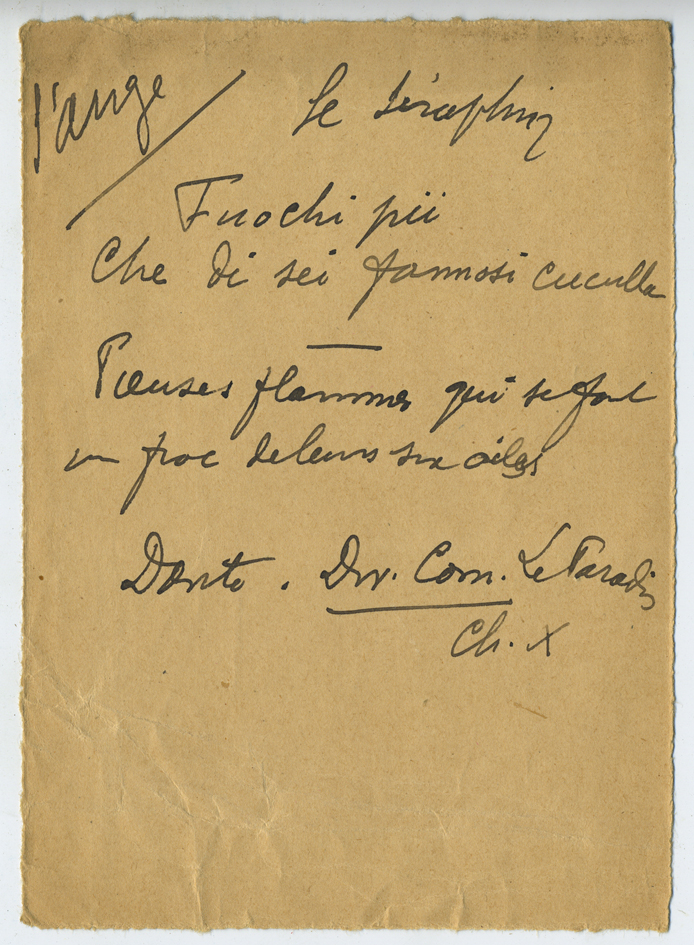 l'ange
Le séraphin
Fuochi pii
Che di sei fannosi cuculla
—
Pieuses flammes qui se font
un froc de leurs six ailes
Dante. Div. Com. Le Paradis
Ch. X